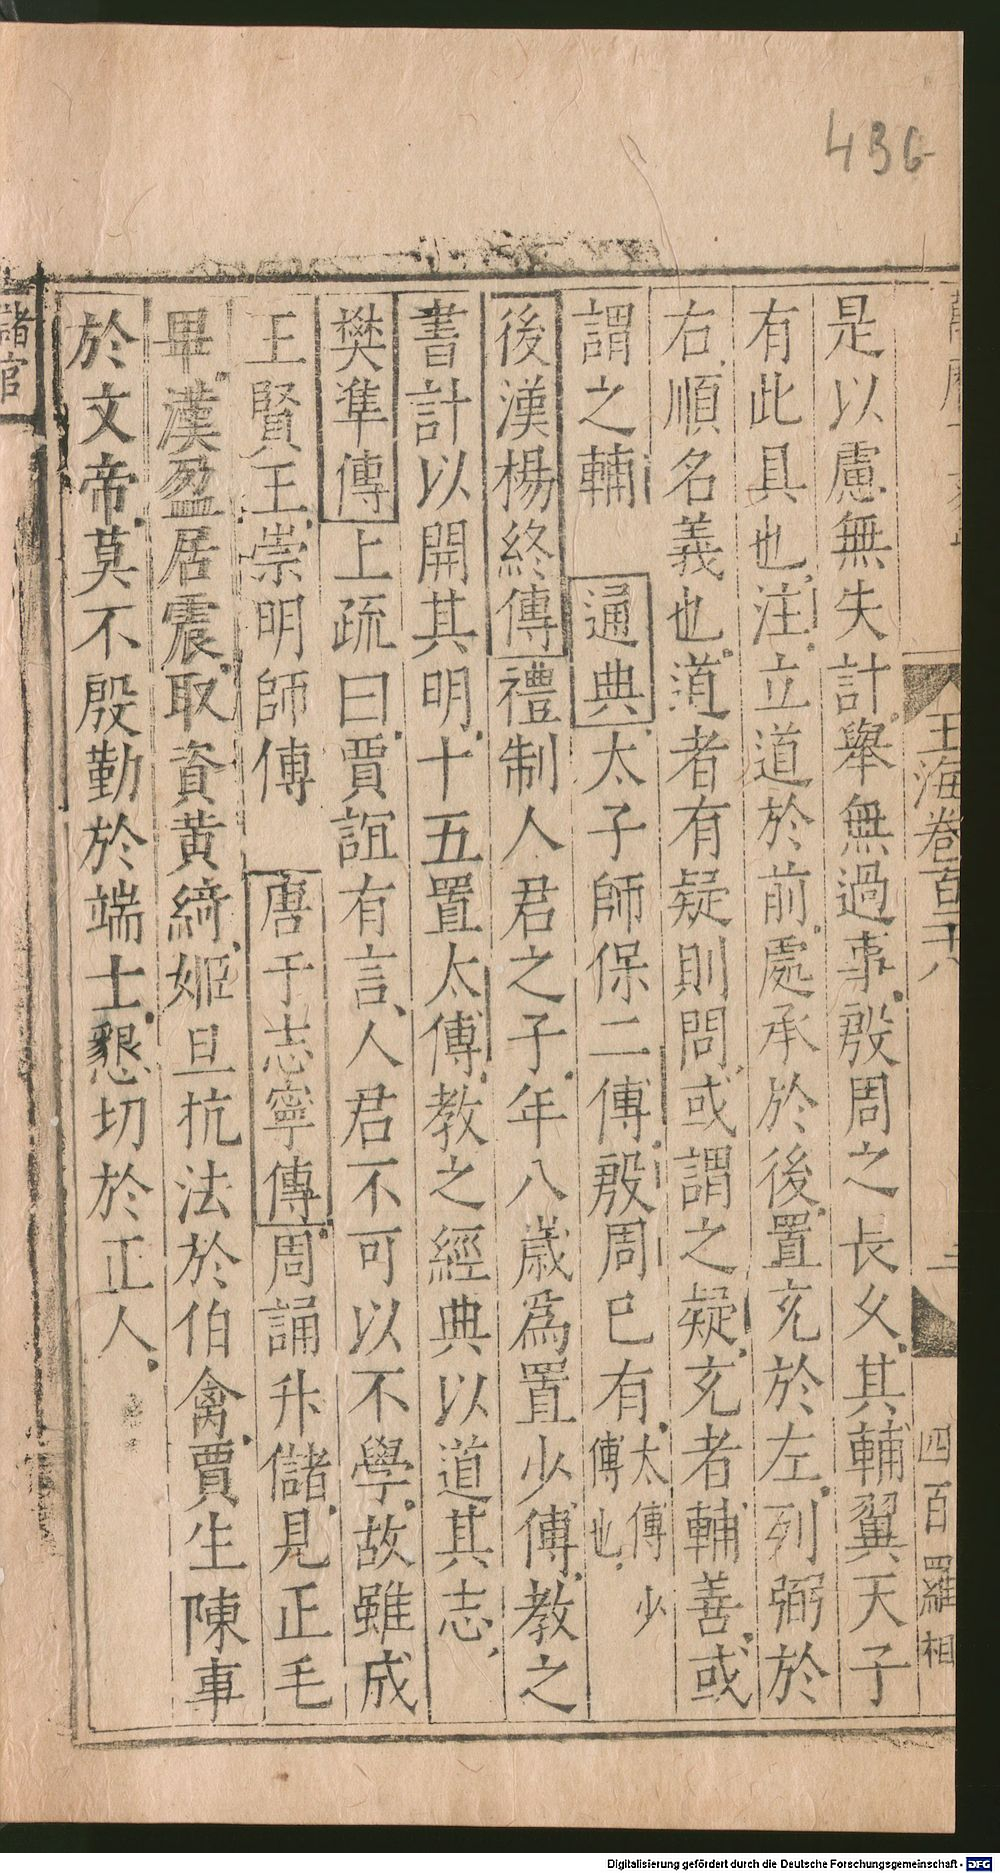 436
玉海卷百二十八
四百
羅相
是以慮無失計舉無過事殷周之長久其輔翼天子
有此具也注立道於前處承於後置充於左列弼於
右順名義也道者有疑則問或謂之疑充者輔善或
謂之輔 通典太子師保二傅殷周已有太傅少傅也
後漢楊終傳禮制人君之子年八歲為置少傅教之
書計以開其明十五置太傅教之經典以道其志
樊準傳上疏曰賈誼有言人君不可以不學故雖成
王賢王崇明師傅 唐于志寧傳周誦升儲見正毛
畢漢盈居震取資黃綺姬旦抗法於伯禽賈生陳事
於文帝莫不殷勤於端士懇切於正人
儲官
Digitalisierung gefördert durch die Deutsche Forschungsgemeinschaft - DFG